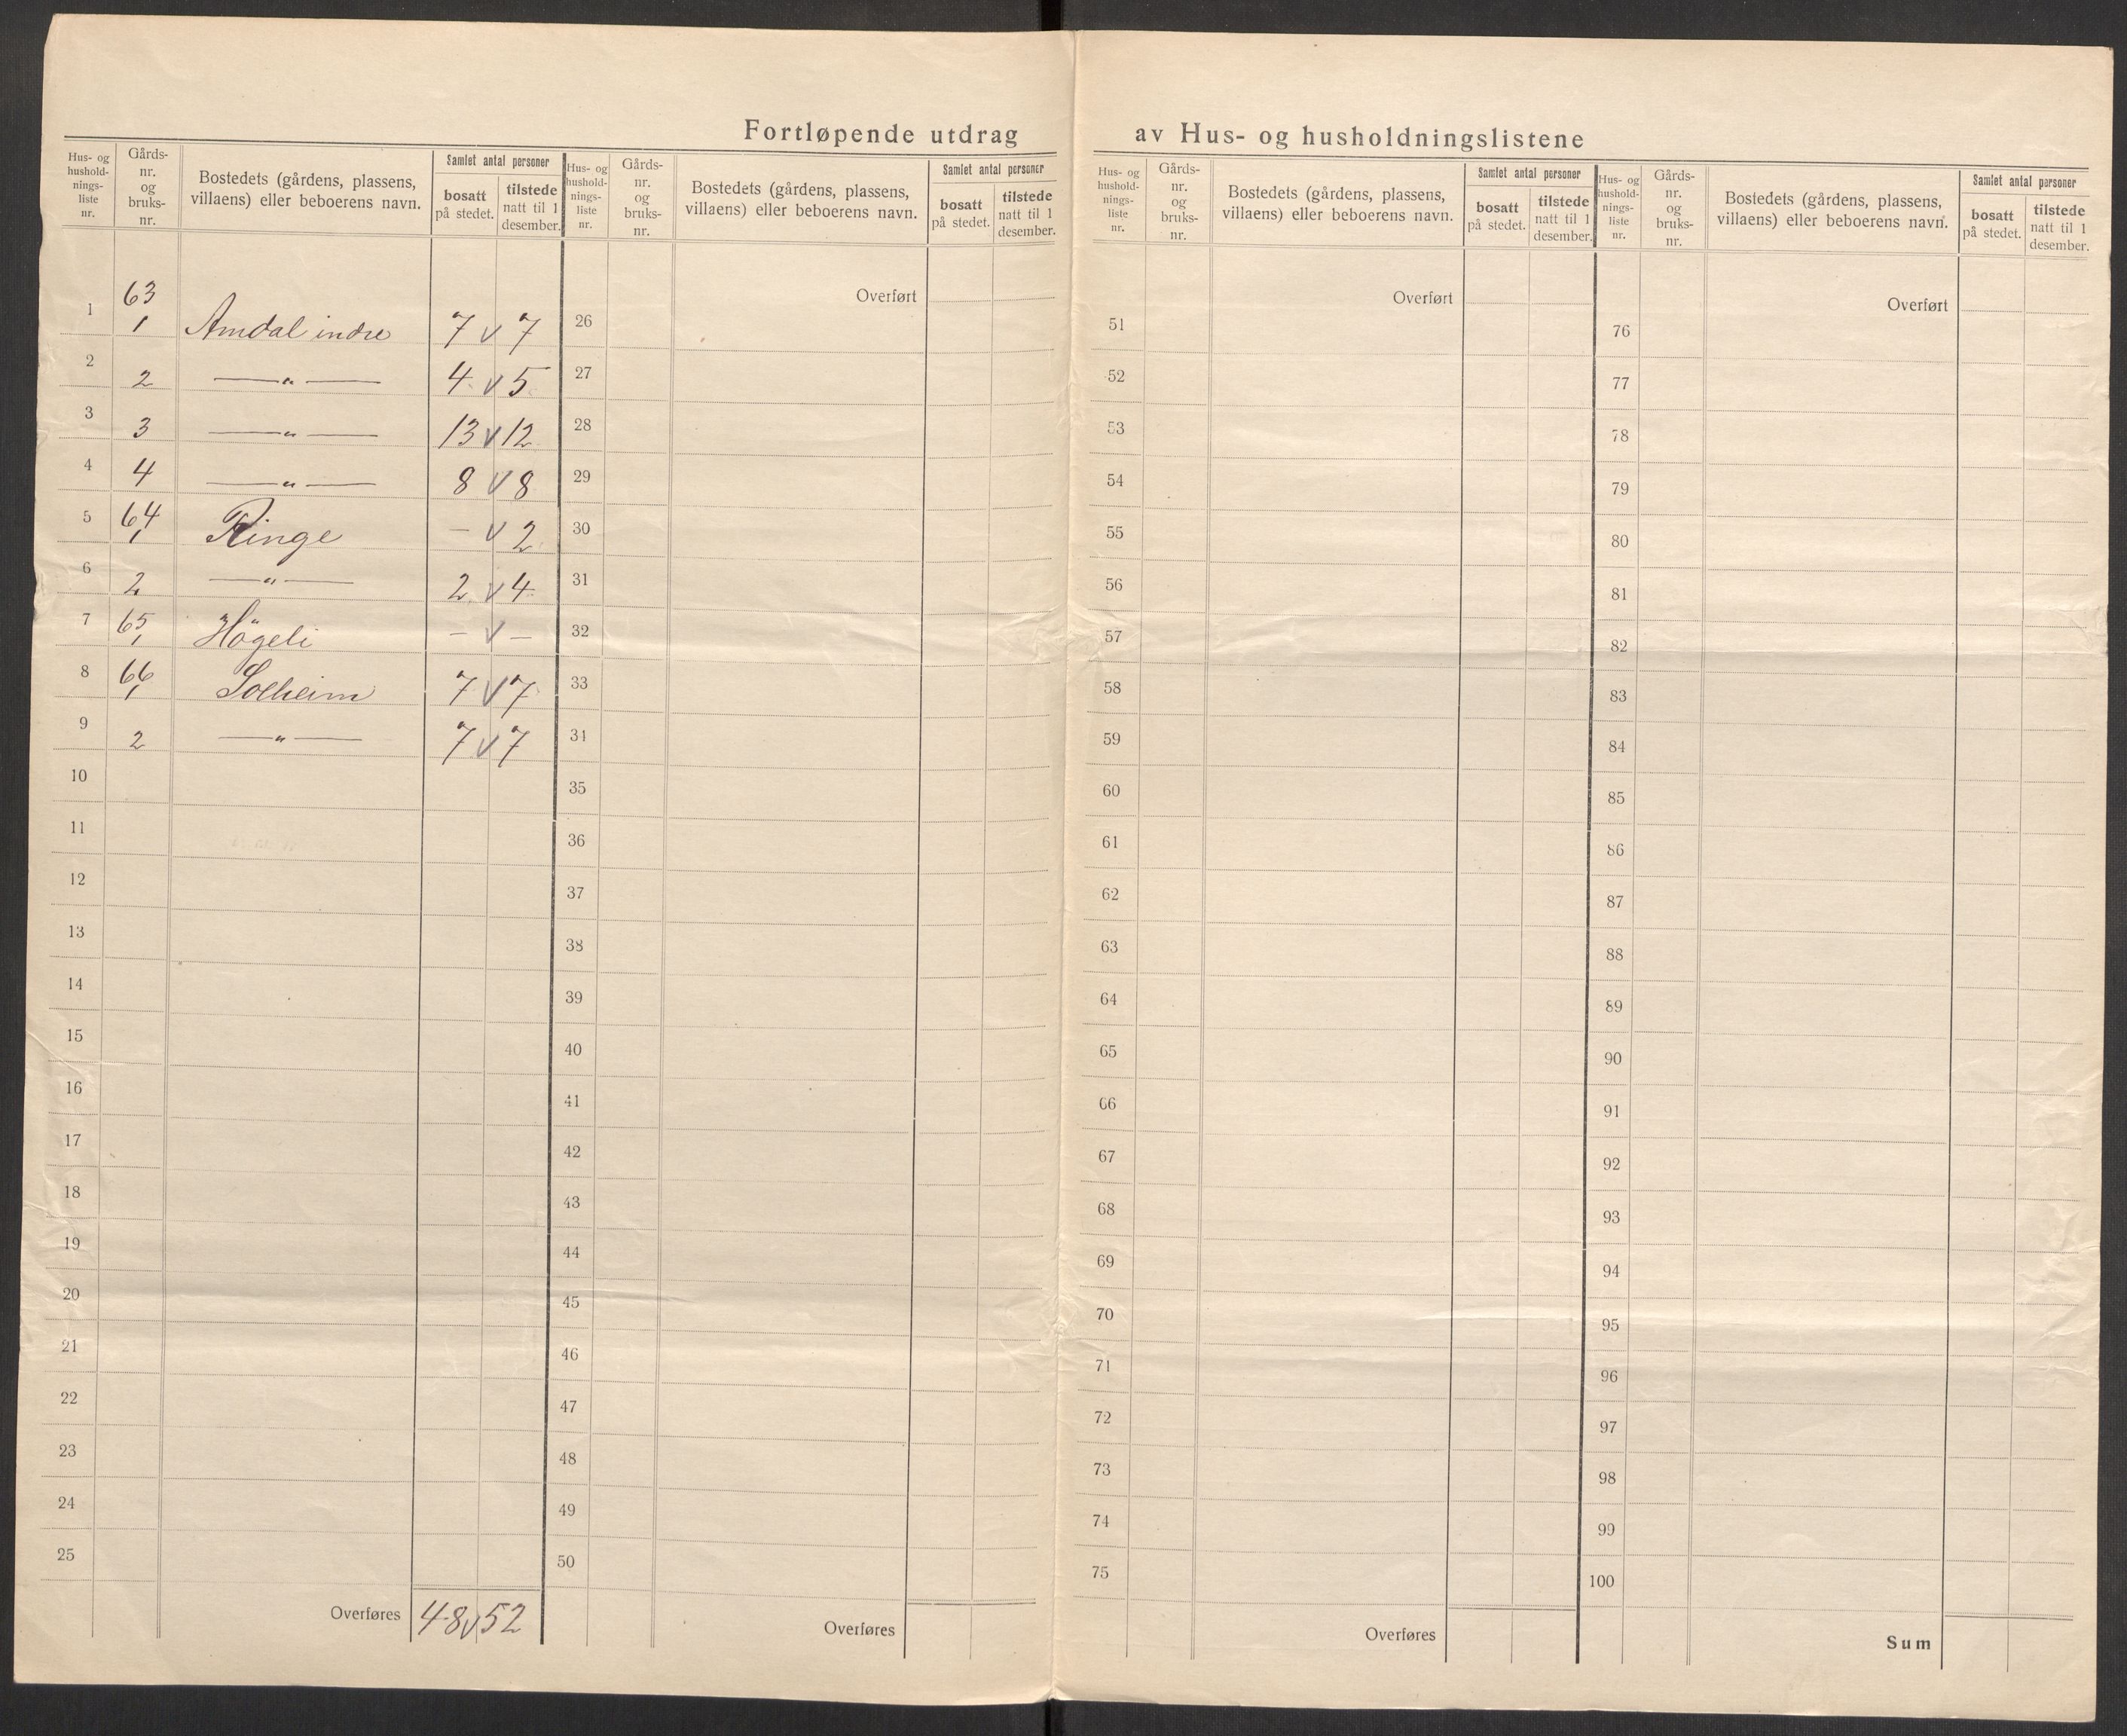 Fortløpende utdrag av Hus- og husholdningslistene
Hus- og hushold- nings- liste nr. | Gårds- nr. og bruks- nr. | Bostedets (gårdens, plassens, villaens) eller beboerens navn. | Samlet antal personer | bosatt på stedet. | tilstede natt til 1 desember.
1 | 63 1 | Amdal indre | 7 v 7
2 | 2 | —„— | 4 v 5
3 | 3 | —„— | 13 v 12
4 | 4 | —„— | 8 v 8
5 | 64 1 | Ringe | – v 2
6 | 2 | —„— | 2 v 4
7 | 65 1 | Högeli | – v –
8 | 66 1 | Solheim | 7 v 7
9 | 2 | —„— | 7 v 7
10
11
12
13
14
15
16
17
18
19
20
21
22
23
24
25
Overføres 48 v 52
Hus- og hushold- nings- liste nr. | Gårds- nr. og bruks- nr. | Bostedets (gårdens, plassens, villaens) eller beboerens navn. | Samlet antal personer | bosatt på stedet. | tilstede natt til 1 desember.
Overført
26
27
28
29
30
31
32
33
34
35
36
37
38
39
40
41
42
43
44
45
46
47
48
49
50
Overføres
Hus- og hushold- nings- liste nr. | Gårds- nr. og bruks- nr. | Bostedets (gårdens, plassens, villaens) eller beboerens navn. | Samlet antal personer | bosatt på stedet. | tilstede natt til 1 desember.
Overført
51
52
53
54
55
56
57
58
59
60
61
62
63
64
65
66
67
68
69
70
71
72
73
74
75
Overføres
Hus- og hushold- nings- liste nr. | Gårds- nr. og bruks- nr. | Bostedets (gårdens, plassens, villaens) eller beboerens navn. | Samlet antal personer | bosatt på stedet. | tilstede natt til 1 desember.
Overført
76
77
78
79
80
81
82
83
84
85
86
87
88
89
90
91
92
93
94
95
96
97
98
99
100
Sum